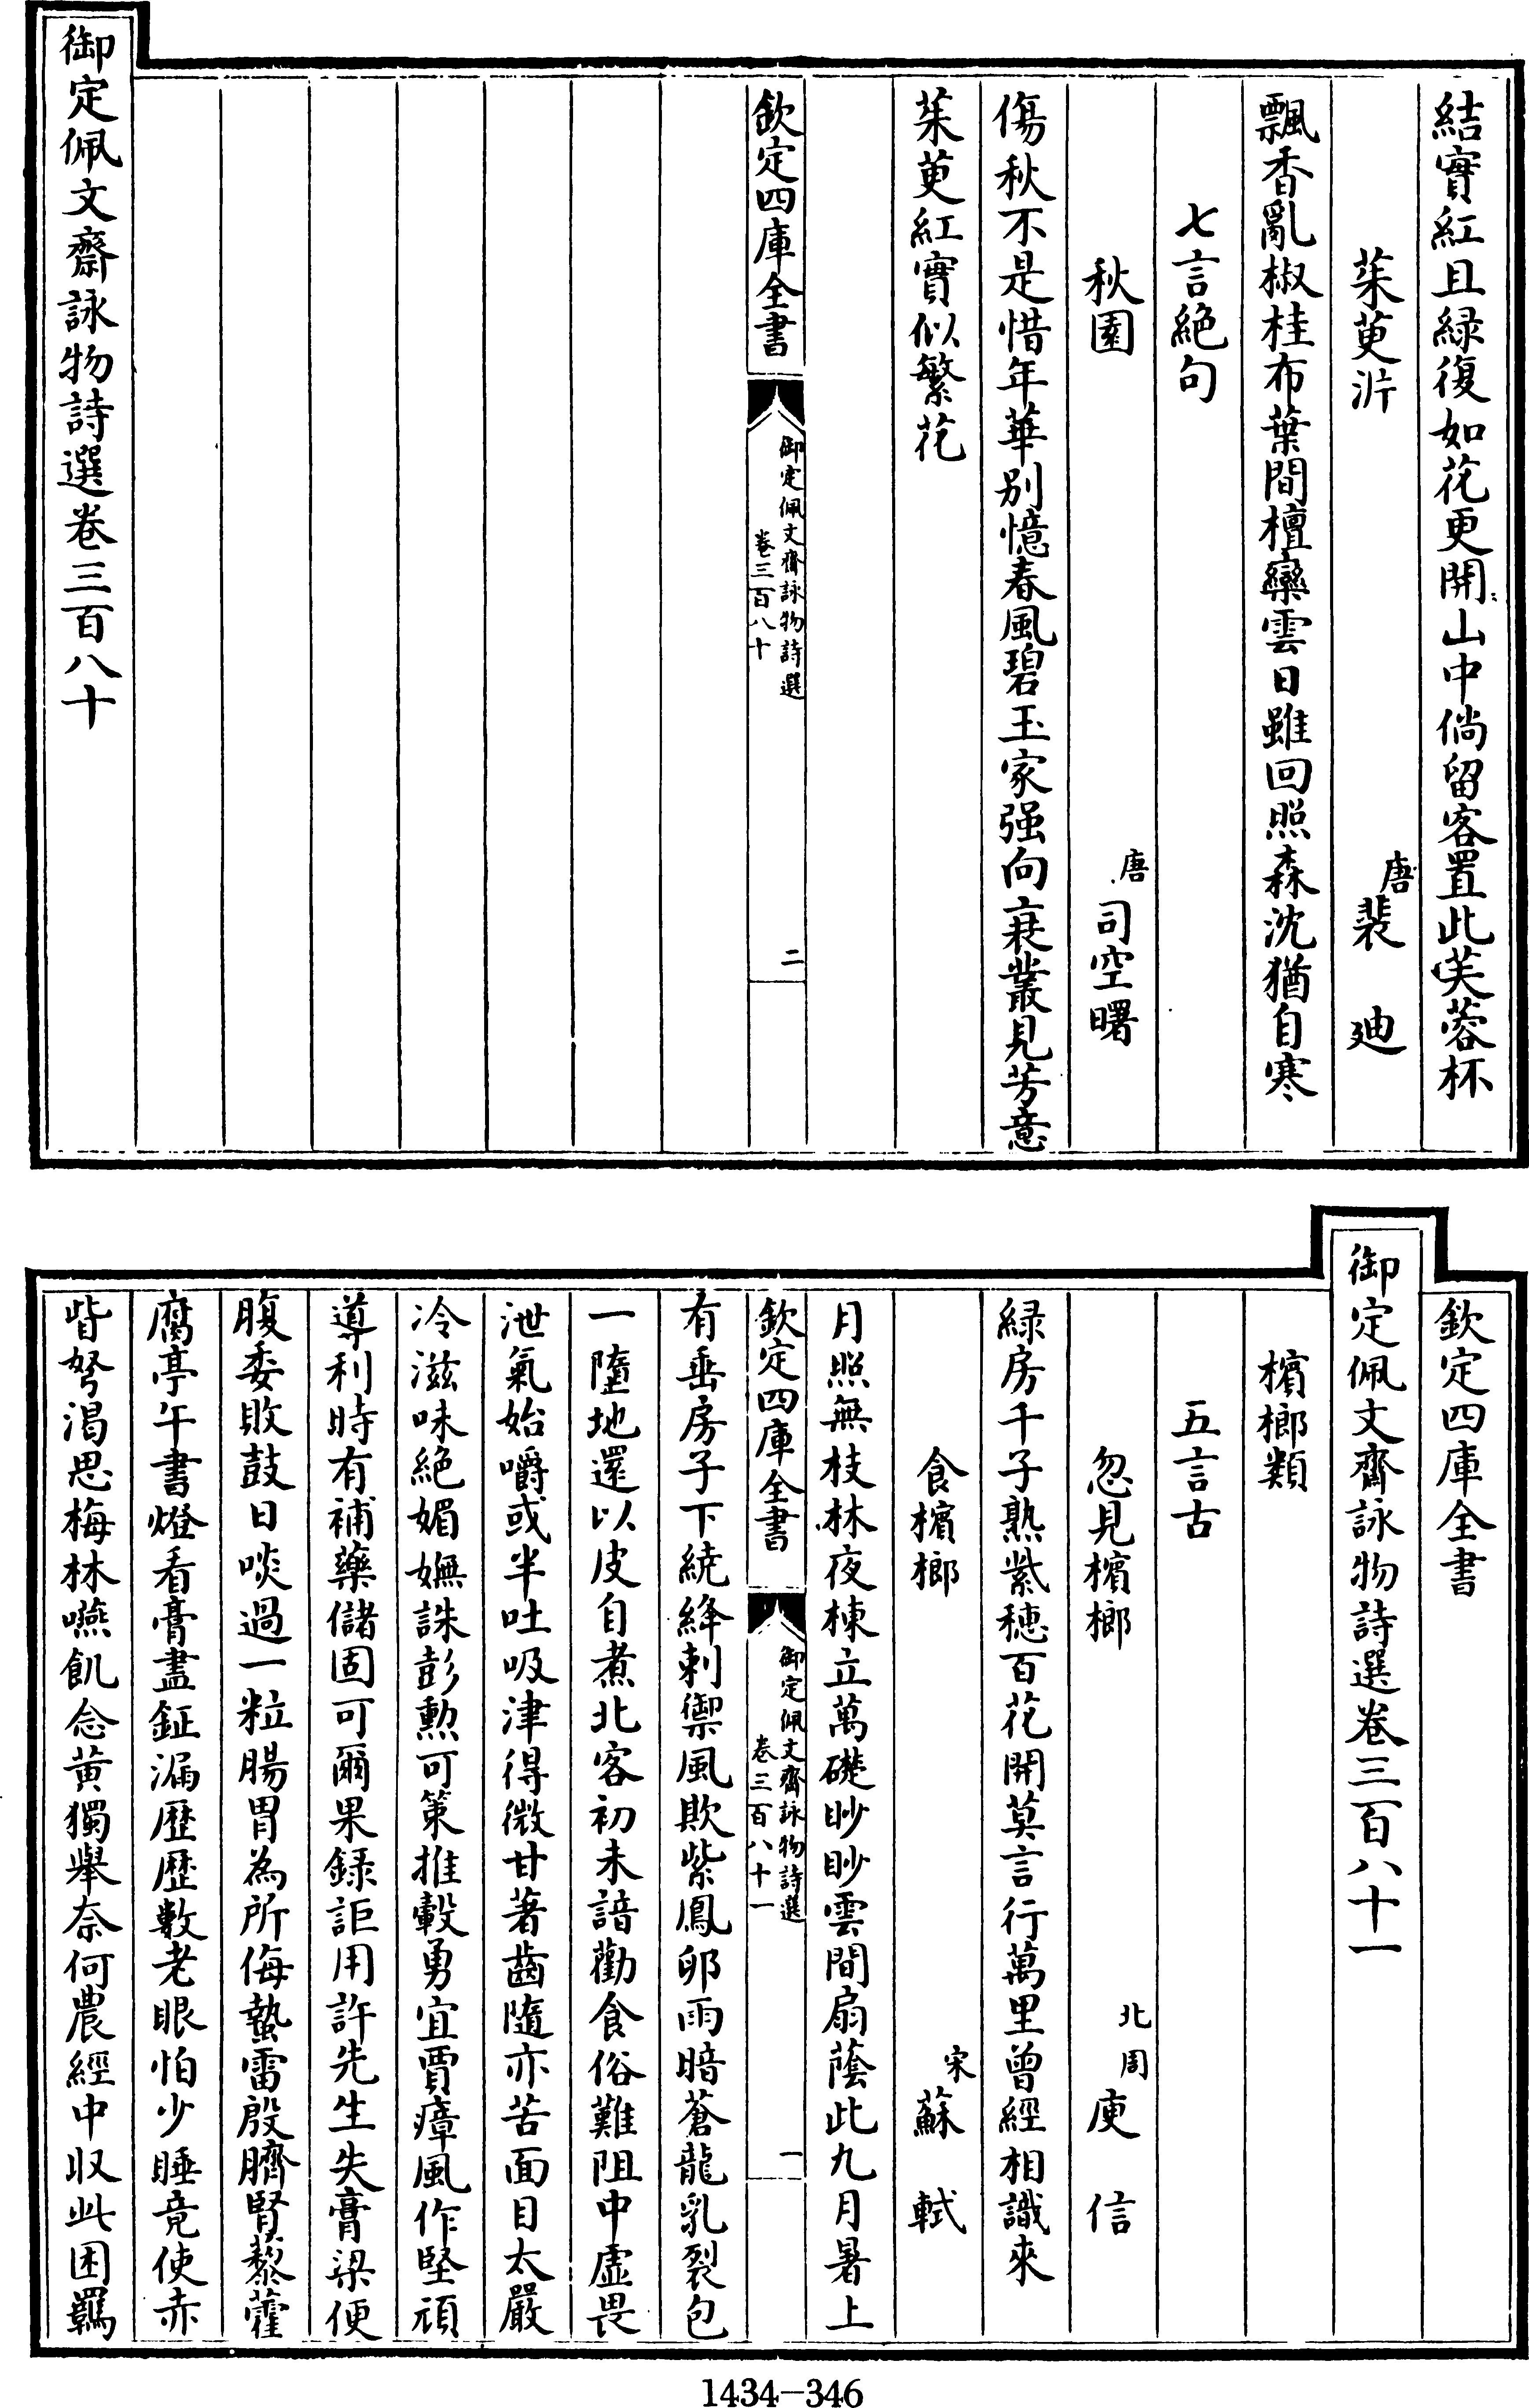 結實紅且緑復如花更開山中倘留客置此芙蓉杯
茱萸沜　唐裴迪
飄香亂椒桂布葉間檀欒雲日雖回照森沈猶自寒
七言絶句
秋園　唐司空曙
傷秋不是惜年華别憶春風碧玉家强向衰叢見芳意
茱萸紅實似繁花
欽定四庫全書
御定佩文齋詠物詩選
卷三百八十
二
御定佩文齋詠物詩選卷三百八十
欽定四庫全書
御定佩文齋詠物詩選卷三百八十一
檳榔類
五言古
忽見檳榔　北周庾信
緑房千子熟紫穗百花開莫言行萬里曾經相識來
食檳榔　宋蘇軾
月照無枝林夜棟立萬礎眇眇雲間扇蔭此九月暑上
欽定四庫全書
御定佩文齋詠物詩選
卷三百八十一
一
有垂房子下繞絳刺禦風欺紫鳳卵雨暗蒼龍乳裂包
一墮地還以皮自煮北客初未諳勸食俗難阻中虚畏
泄氣始嚼或半吐吸津得微甘著齒隨亦苦面目太嚴
冷滋味絶媚嫵誅彭勲可策推轂勇宜賈瘴風作堅頑
導利時有補藥儲固可爾果録詎用許先生失膏粱便
腹委敗鼓日啖過一粒腸胃為所侮蟄雷殷臍腎藜藿
腐亭午書燈看膏盡鉦漏歷歷數老眼怕少睡竟使赤
眥努渇思梅林嚥飢念黄獨舉奈何農經中収此困羈
1434-346